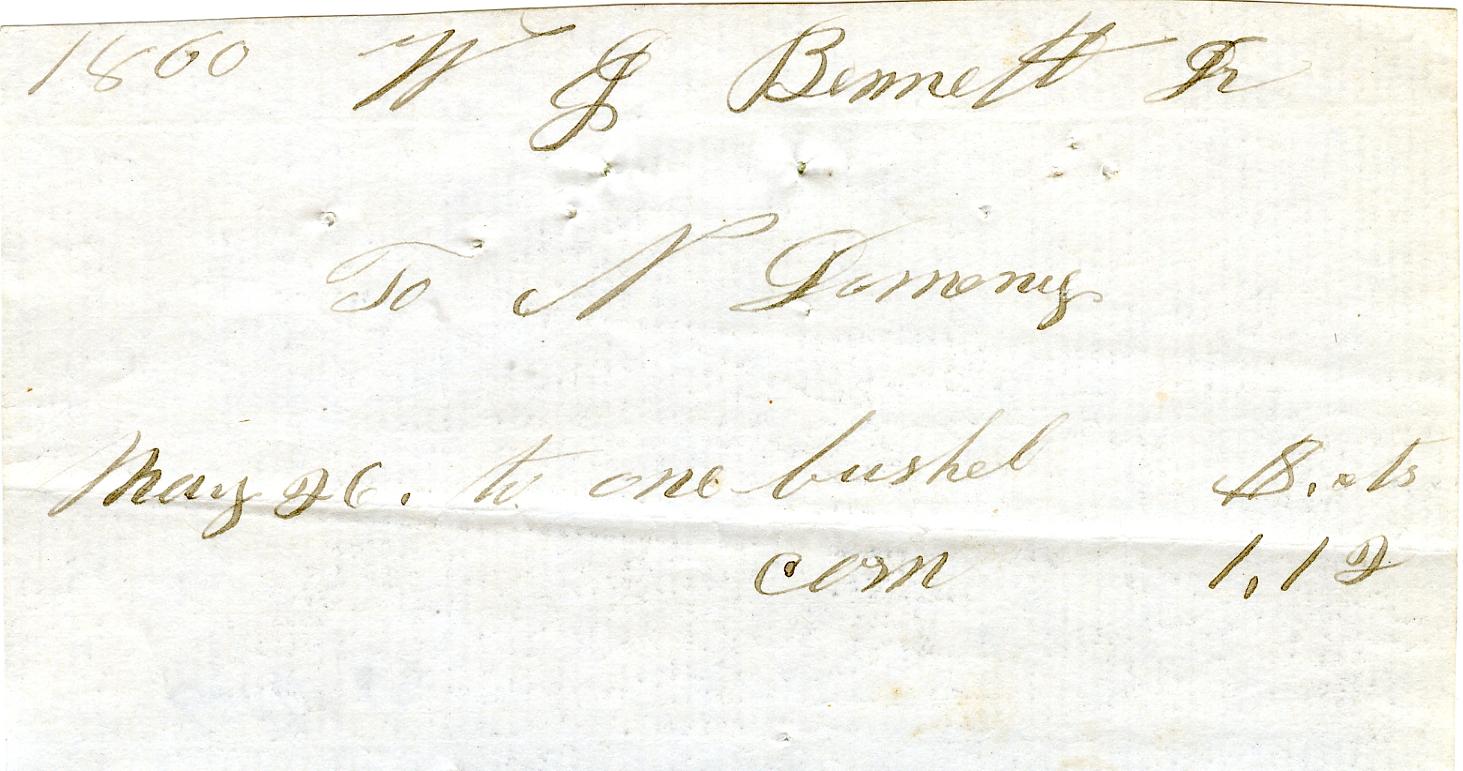 1860 W J Bennett Dr
To N Domeny
May 26. to one bushel $.cts
corn 1,12